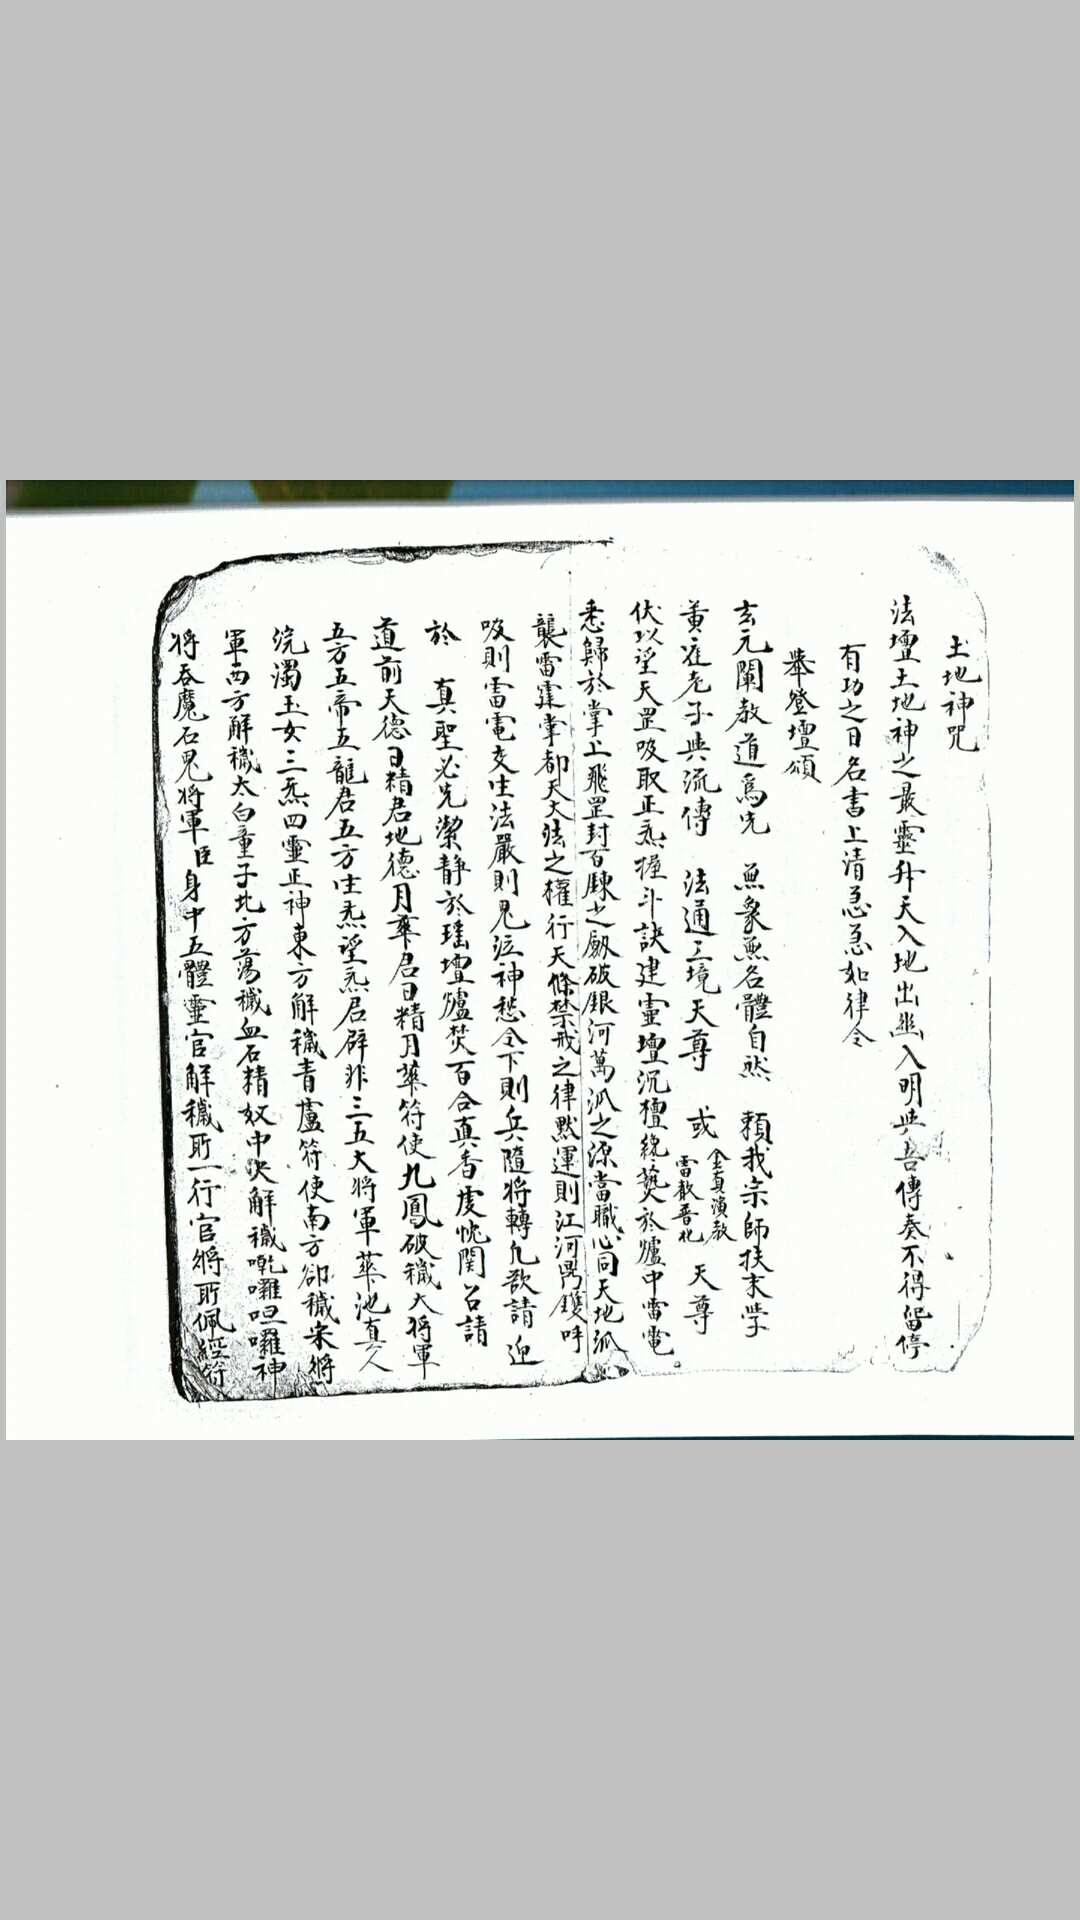 土地神咒
法壇土地神之最靈升天入地出幽入明與吾傳奏不得留停
有功之日名書上清急急如律令
舉登壇頌
玄元闡教道為先 無象無名體自然 賴我宗師扶末學
黃崔老子典流傳 法通三境天尊 或 金真演教 雷教普化 天尊
伏以望天罡吸取正炁握斗訣建靈壇沉檀纔爇於爐中雷電
悉歸於掌上飛罡封百鍊之劍破銀河萬派之源當職心同天地派
襲雷霆掌都天大法之權行天條禁戒之律默運則江河鼎鑊呼
吸則雷電交生法嚴則鬼泣神愁令下則兵隨將轉凡欲請迎
於 真聖必先潔靜於瑤壇爐焚百合真香虔忱関召請
道前天德日精君地德月華君日精月華符使九鳳破穢大將軍
五方五帝五龍君五方生炁望炁君辟非三五大將軍華池真人
浣濁玉女三炁四靈正神東方解穢青盧符使南方卻穢宋將
軍西方解穢太白童子北方蕩穢血石精奴中央解穢乾囉呾囉神
將吞魔石鬼將軍臣身中五體靈官解穢所一行官將所佩經符